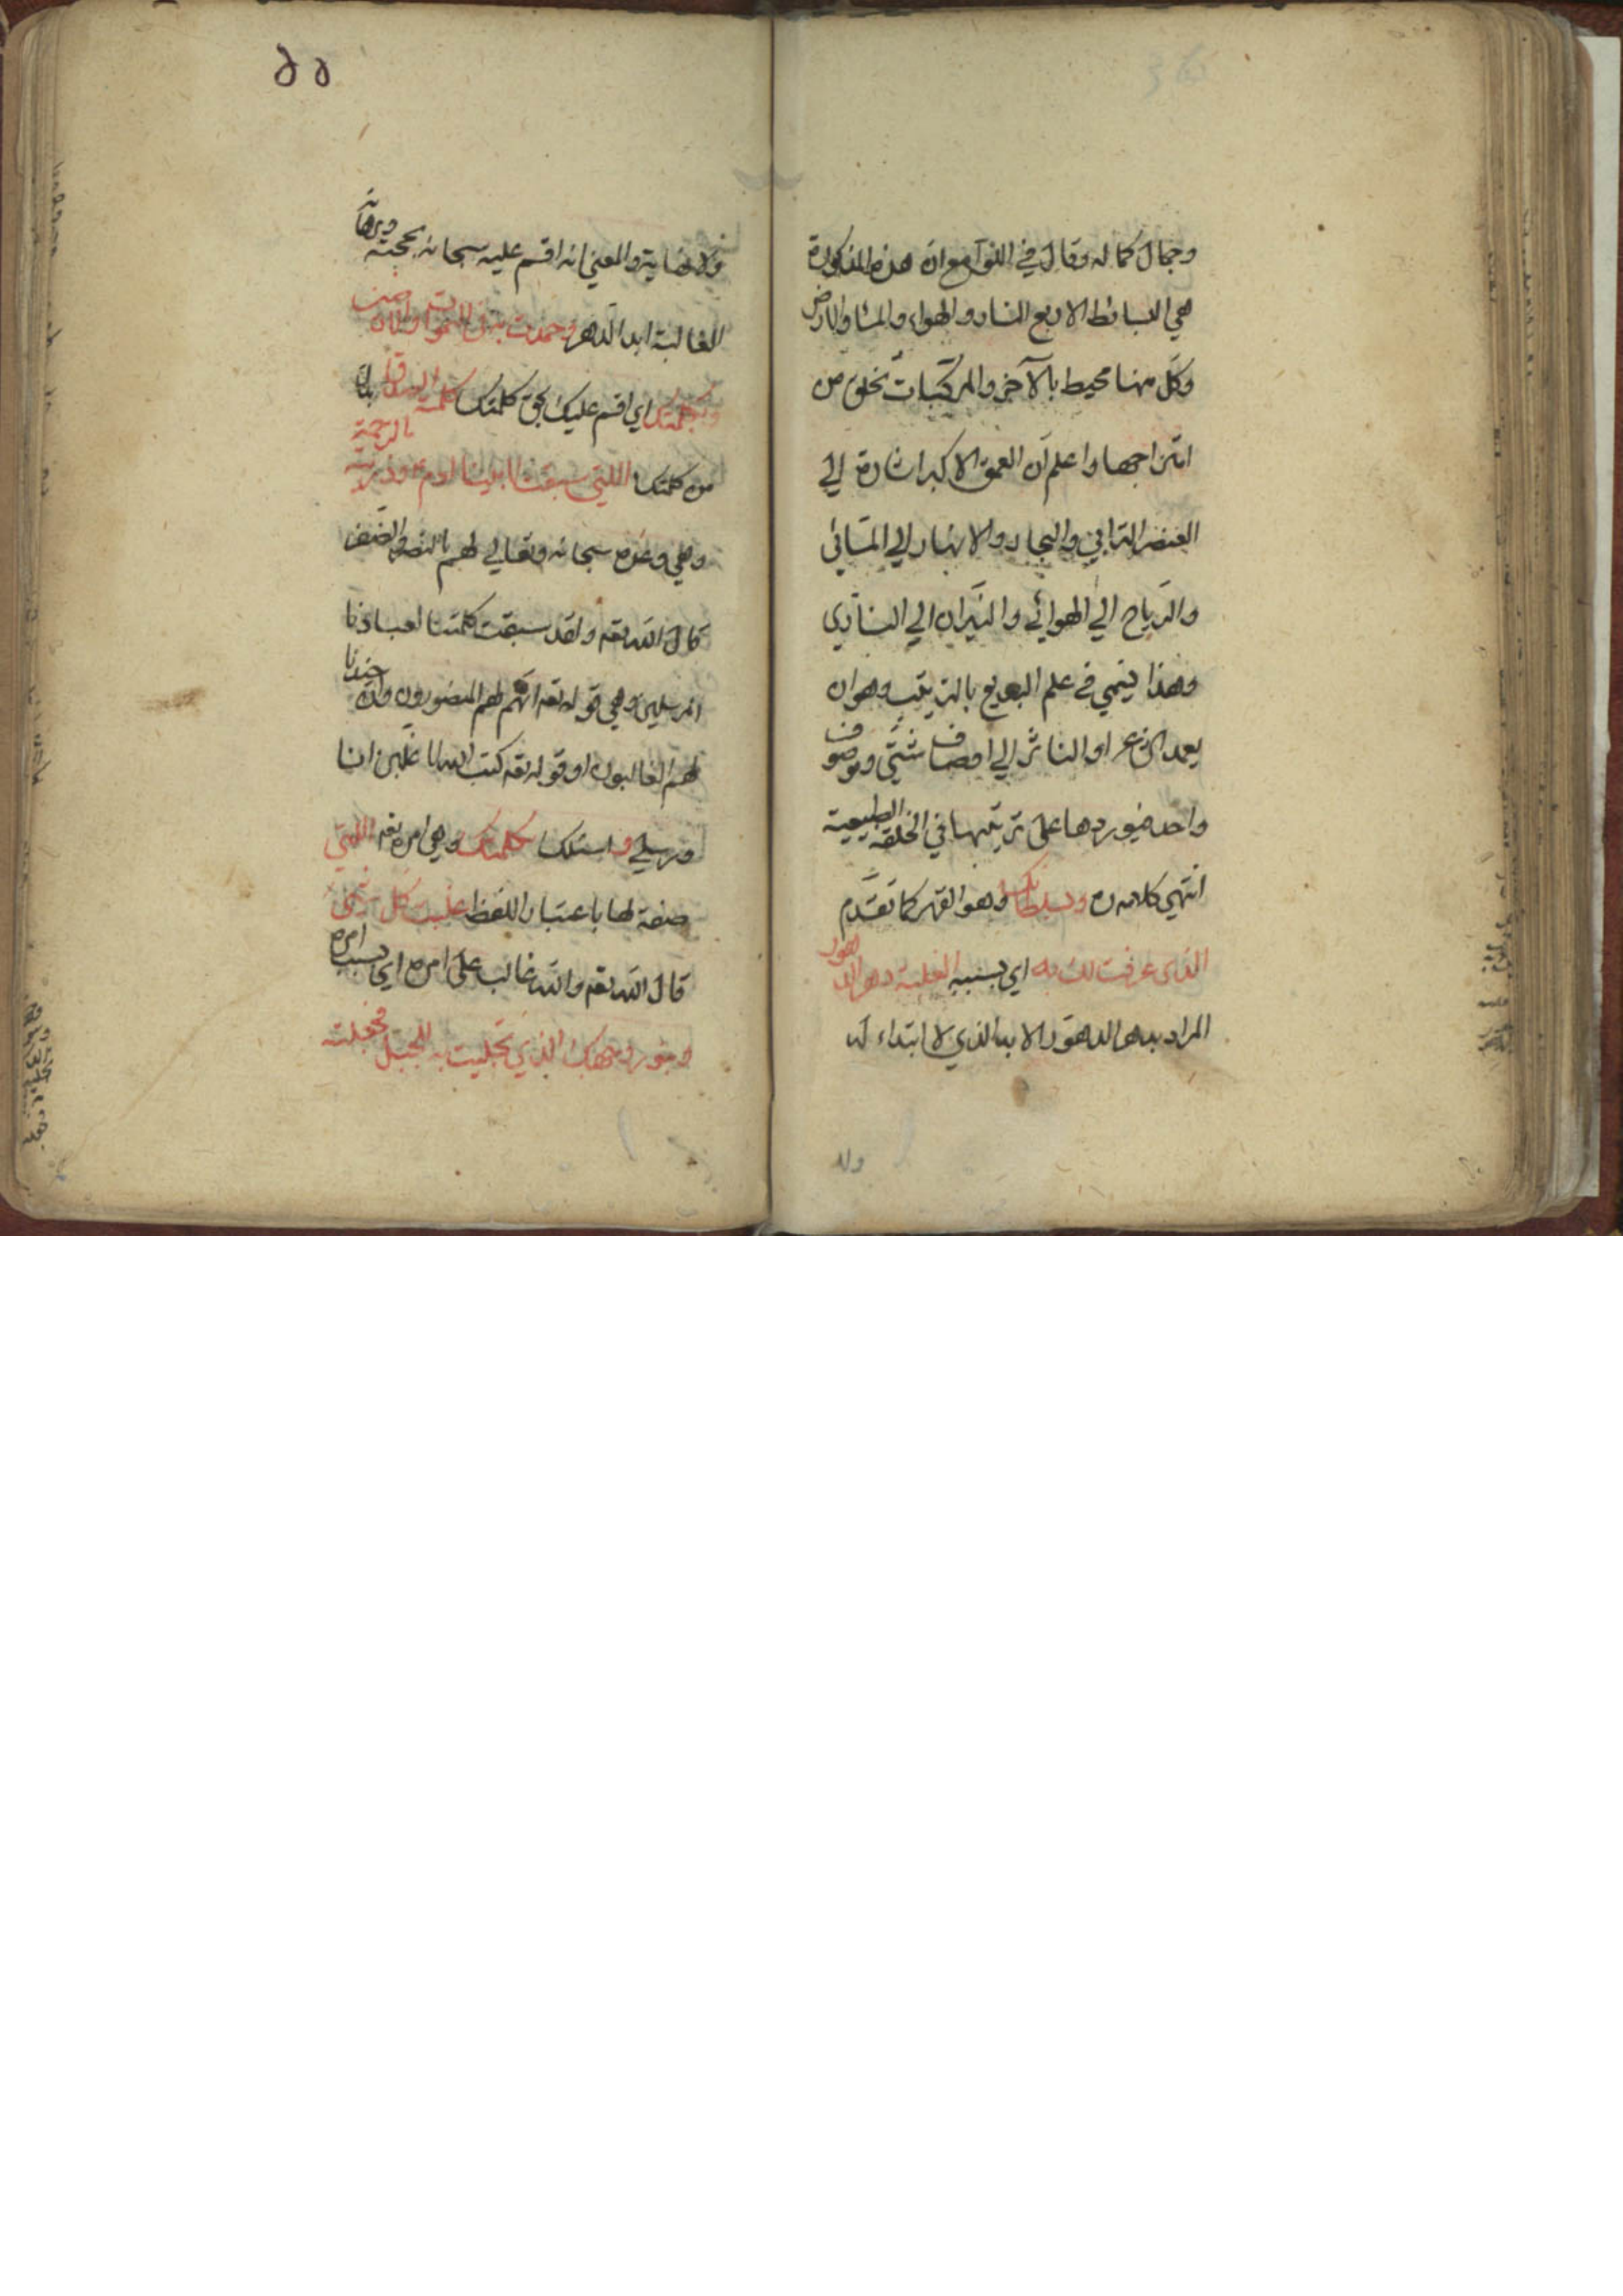 وجمال كماله وقال في اللوامع ان هذه المذكورة
هي البسائط الاربع النار والهواء والماء والارض
وكل منها محيط بالآخر والمركبات تخلق من
امتزاجها واعلم ان العمق الاكبر اشارة الي
العنصر الترابي والبحار والانهار الي المائي
والرياح الي الهوائي والنيران الي الناري
وهذا يسمي في علم البديع بالترتيب وهو ان
يعمد الشاعر او الناثر الي اوصاف شتي وموصوف
واحد فيوردها علي ترتيبها في الخلقة الطبيعية
انتهي كلامه ره وبسلطانك وهو القهر كما تقدم
الذي عرفت لك به اي بسببه الغلبة دهر الدهور
المراد بدهر الدهور الابد الذي لا ابتداء له
ولا
٥٥
ولا نهاية والمعني انه اقسم عليه سبحانه بحجته وبرهانه
الغالبة ابد الدهر وحمدت به في السموات والارضين
وبكلمتك اي اقسم عليك بحق كلمتك كلمة الصدق بدل
من كلمتك اللتي سبقت لابينا ادم ع وذريته بالرحمة
وهي وعده سبحانه وتعالي لهم بالنصر
قال الله تعه ولقد سبقت كلمتنا لعبادنا
المرسلين وهي قوله تعه انهم لهم المنصورون وان جندنا
لهم الغالبون او قوله تعه كتب الله لاغلبن انا
ورسلي و اسئلك بكلمتك وهي امره تعه اللتي
صفة لها باعتبار اللفظ غلبت كل شئ
قال الله تعه والله غالب علي امره اي بسبب امره
وبنور وجهك الذي تجليت به للجبل فجعلته